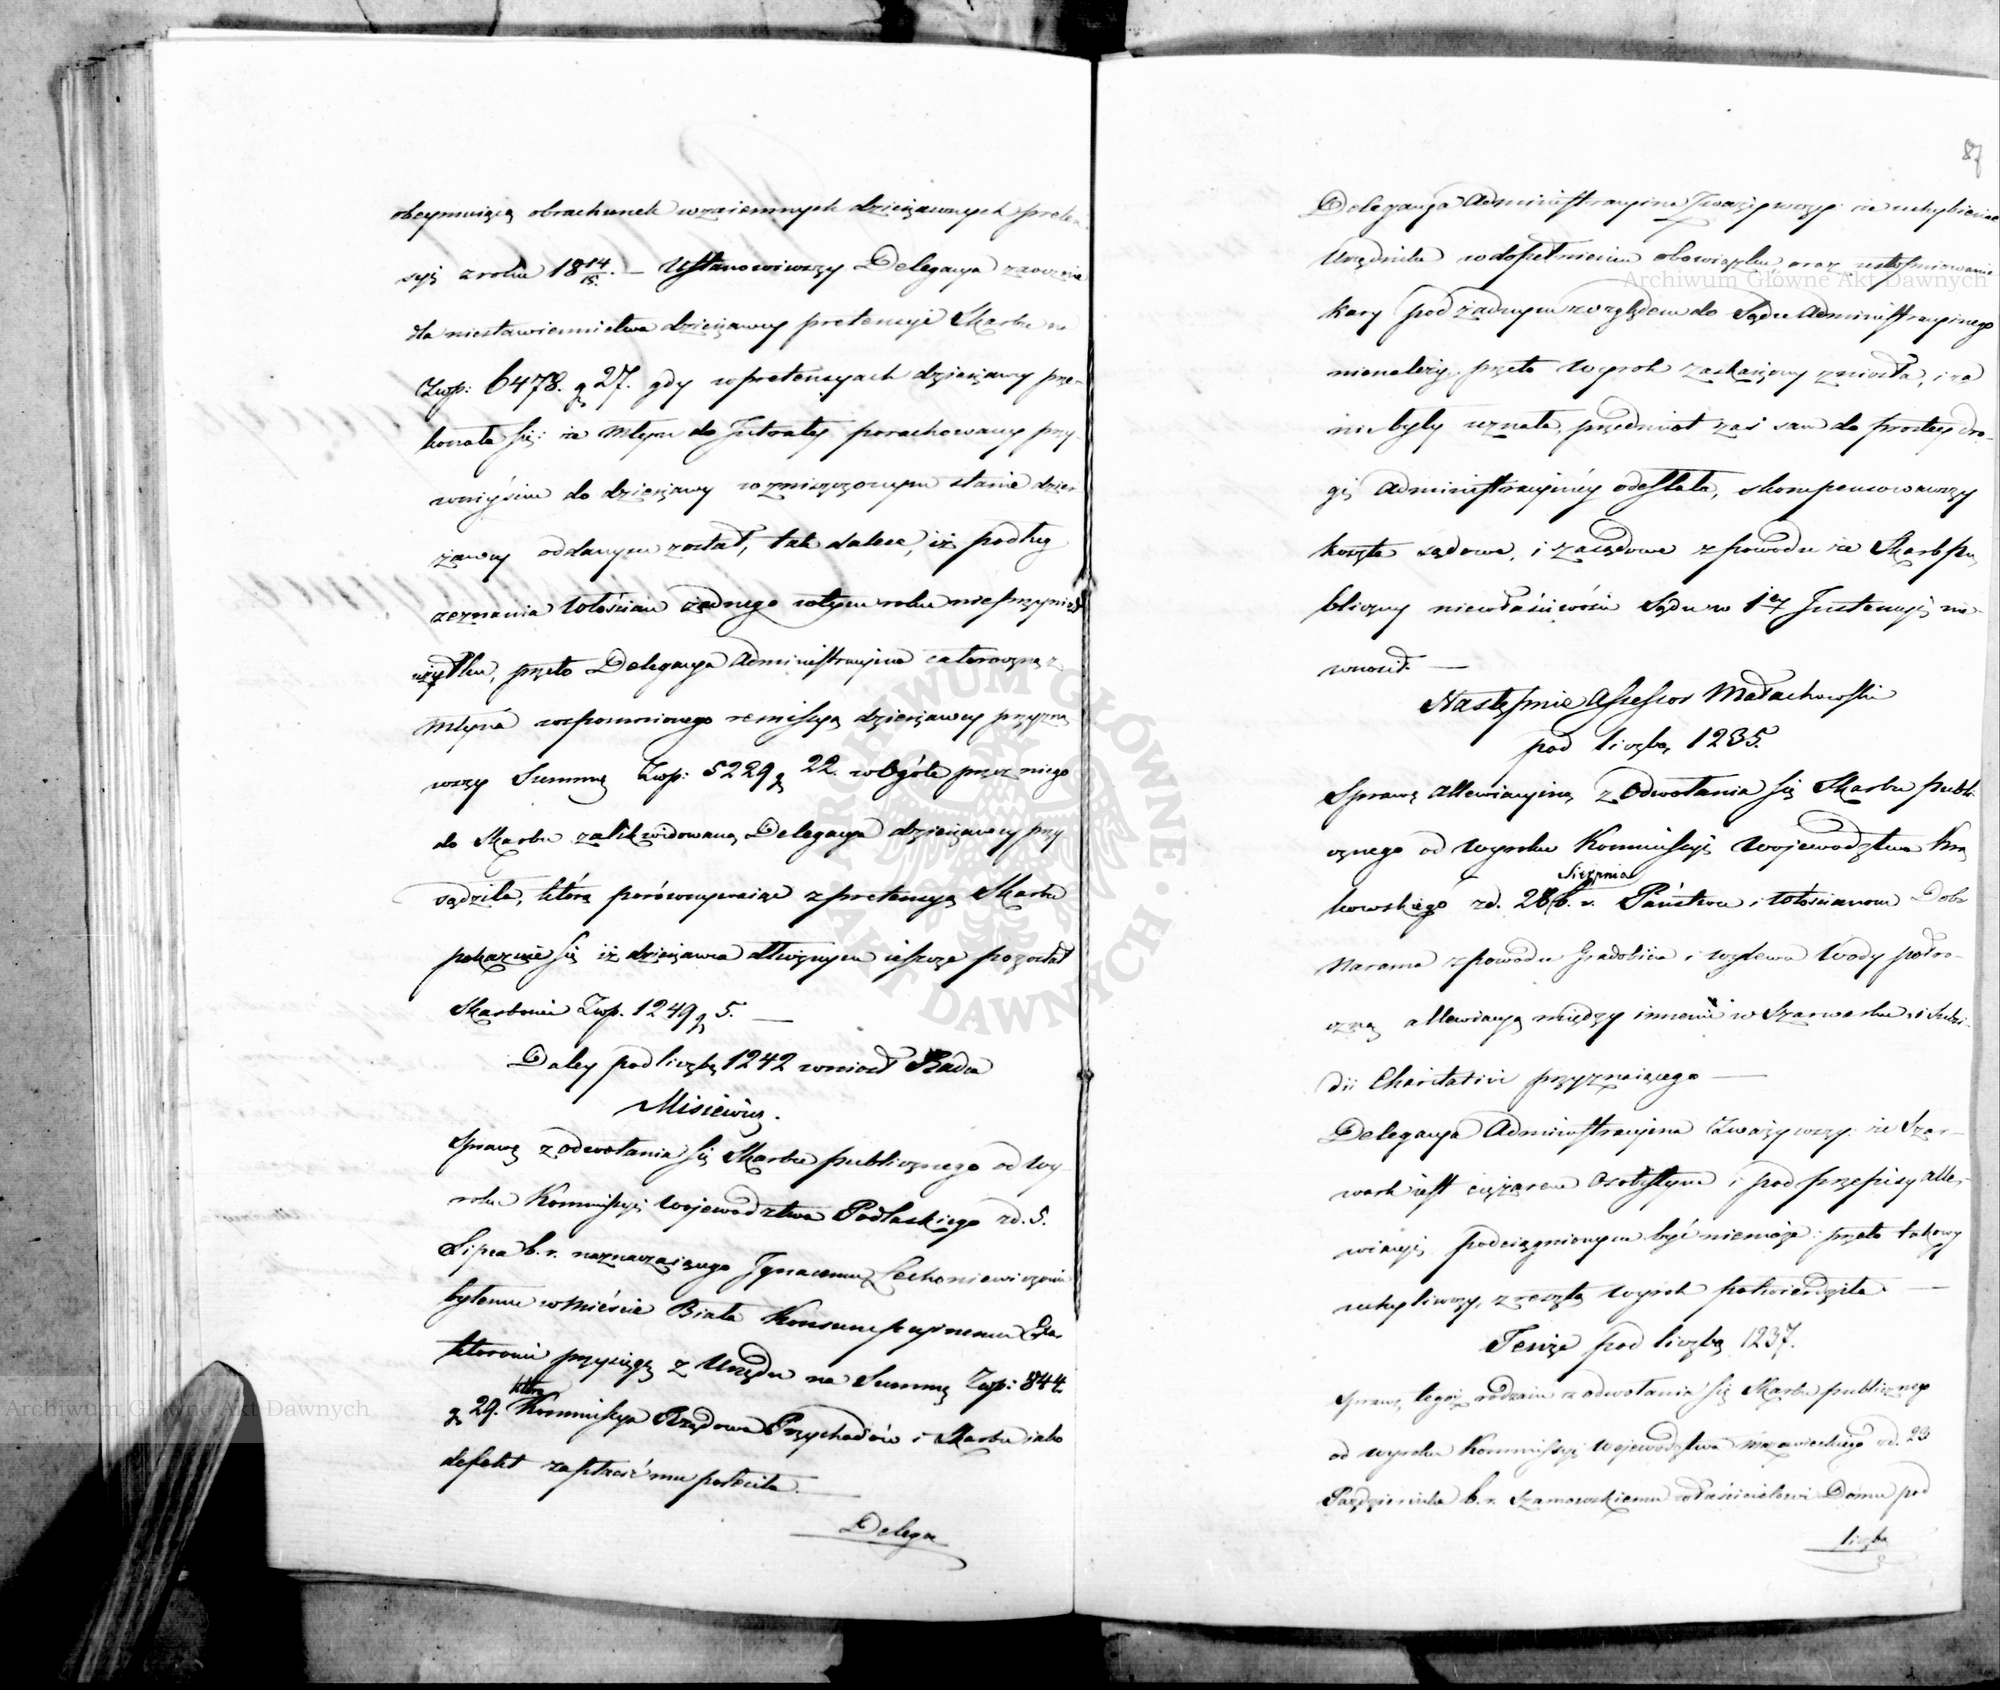 obeymuiącą obrachunek wzaiemnych dzierżawnych preten-
syi zroku 18 14/15. – Ustanowiwszy Delegacya zaocznie
dla niestawiennictwa dzierżawcy pretensyi Skarbu na
Złp: 6478. g 27. gdy w pretensyach dzierżawcy prze-
konała się: że Młyn do Jutrat porachowany przy
wniyściu do dzierżawy w zniszczonym stanie dzier
żawcy oddanym został, tak dalece, iż podług
zeznania Włościan żadnego w tym roku nieprzyniósł
użytku, przeto Delegacya Administracyina całoroczną z
Młyna wspomnionego remissyą dzierżawcy przyzna
wszy Summę Złp: 5229 g 22. w ogóle przez niego
do Skarbu zalikwidowaną Delegacya dzierżawcy przy
sądziła, którą porównywaiąc z pretensyą Skarbu
pokazuie się iż dzierżawca dłużnym ieszcze pozostał
Skarbowi Złp. 1249 g 5. —
Daley pod liczbą 1242 wniosł Radca
Misiewicz.
Sprawę z odwołania się Skarbu publicznego od Wy
roku Kommissyi Województwa Podlaskiego z d. 5.
Lipca b. r. naznaczaiącego Ignacemu Lechoniewiczowi
byłemu w Mieście Biała Konsumpcyinemu Exa-
ktorowi przysięgę z Urzędu na Summę Złp: 844.
g 29. którą Kommissya Rządowa Przychodów i Skarbu iako
defekt zapłacić mu poleciła. —
Delega
87
Delegacya Administracyina Zważywszy: że uchybienie
Urzędnika w dopełnieniu obowiązku, oraz ustopniowanie
kary pod żadnym względem do Sądu Administracyinego
nienależy, przeto Wyrok zaskarżony zniosła, i za
niebyły uznała, przedmiot zaś sam do prostey dro-
gi Administracyiney odesłała, skompensowawszy
koszta sądowe, i zasądowe z powodu że Skarb Pu
bliczny niewłaściwości Sądu w 1éy Instancyi nie
wnosił. —
Następnie Assessor Małachowski
pod liczbą 1235.
Sprawę allewiacyiną z Odwołania się Skarbu publi
cznego od Wyroku Kommissyi Województwa Kra
kowskiego z d. 28 Sierpnia b. r. Państwu i Włościanom Dobr
Narama z powodu Gradobicia i wylewu Wody potro-
czną allewiacyą między innemi w Szarwarku, i Subsi-
dii Charitativi przyznaiącego —
Delegacya Administracyina Zważywszy: że Szar-
wark iest ciężarem Osobistym i pod przepisy alle-
wiacyi podciągnionym być niemoże: przeto takowy
uchyliwszy, z resztą Wyrok potwierdziła. —
Tenże pod liczbą 1237.
Sprawę tegoż rodzaiu z odwołania się Skarbu publicznego
od Wyroku Kommissyi Województwa Mazowieckiego z d. 23
Października b. r. Szamowskiemu właścicielowi Domu pod
liczbą
Archiwum Główne Akt Dawnych
Archiwum Główne Akt Dawnych
ARCHIWUM GŁÓWNE · AKT DAWNYCH ·